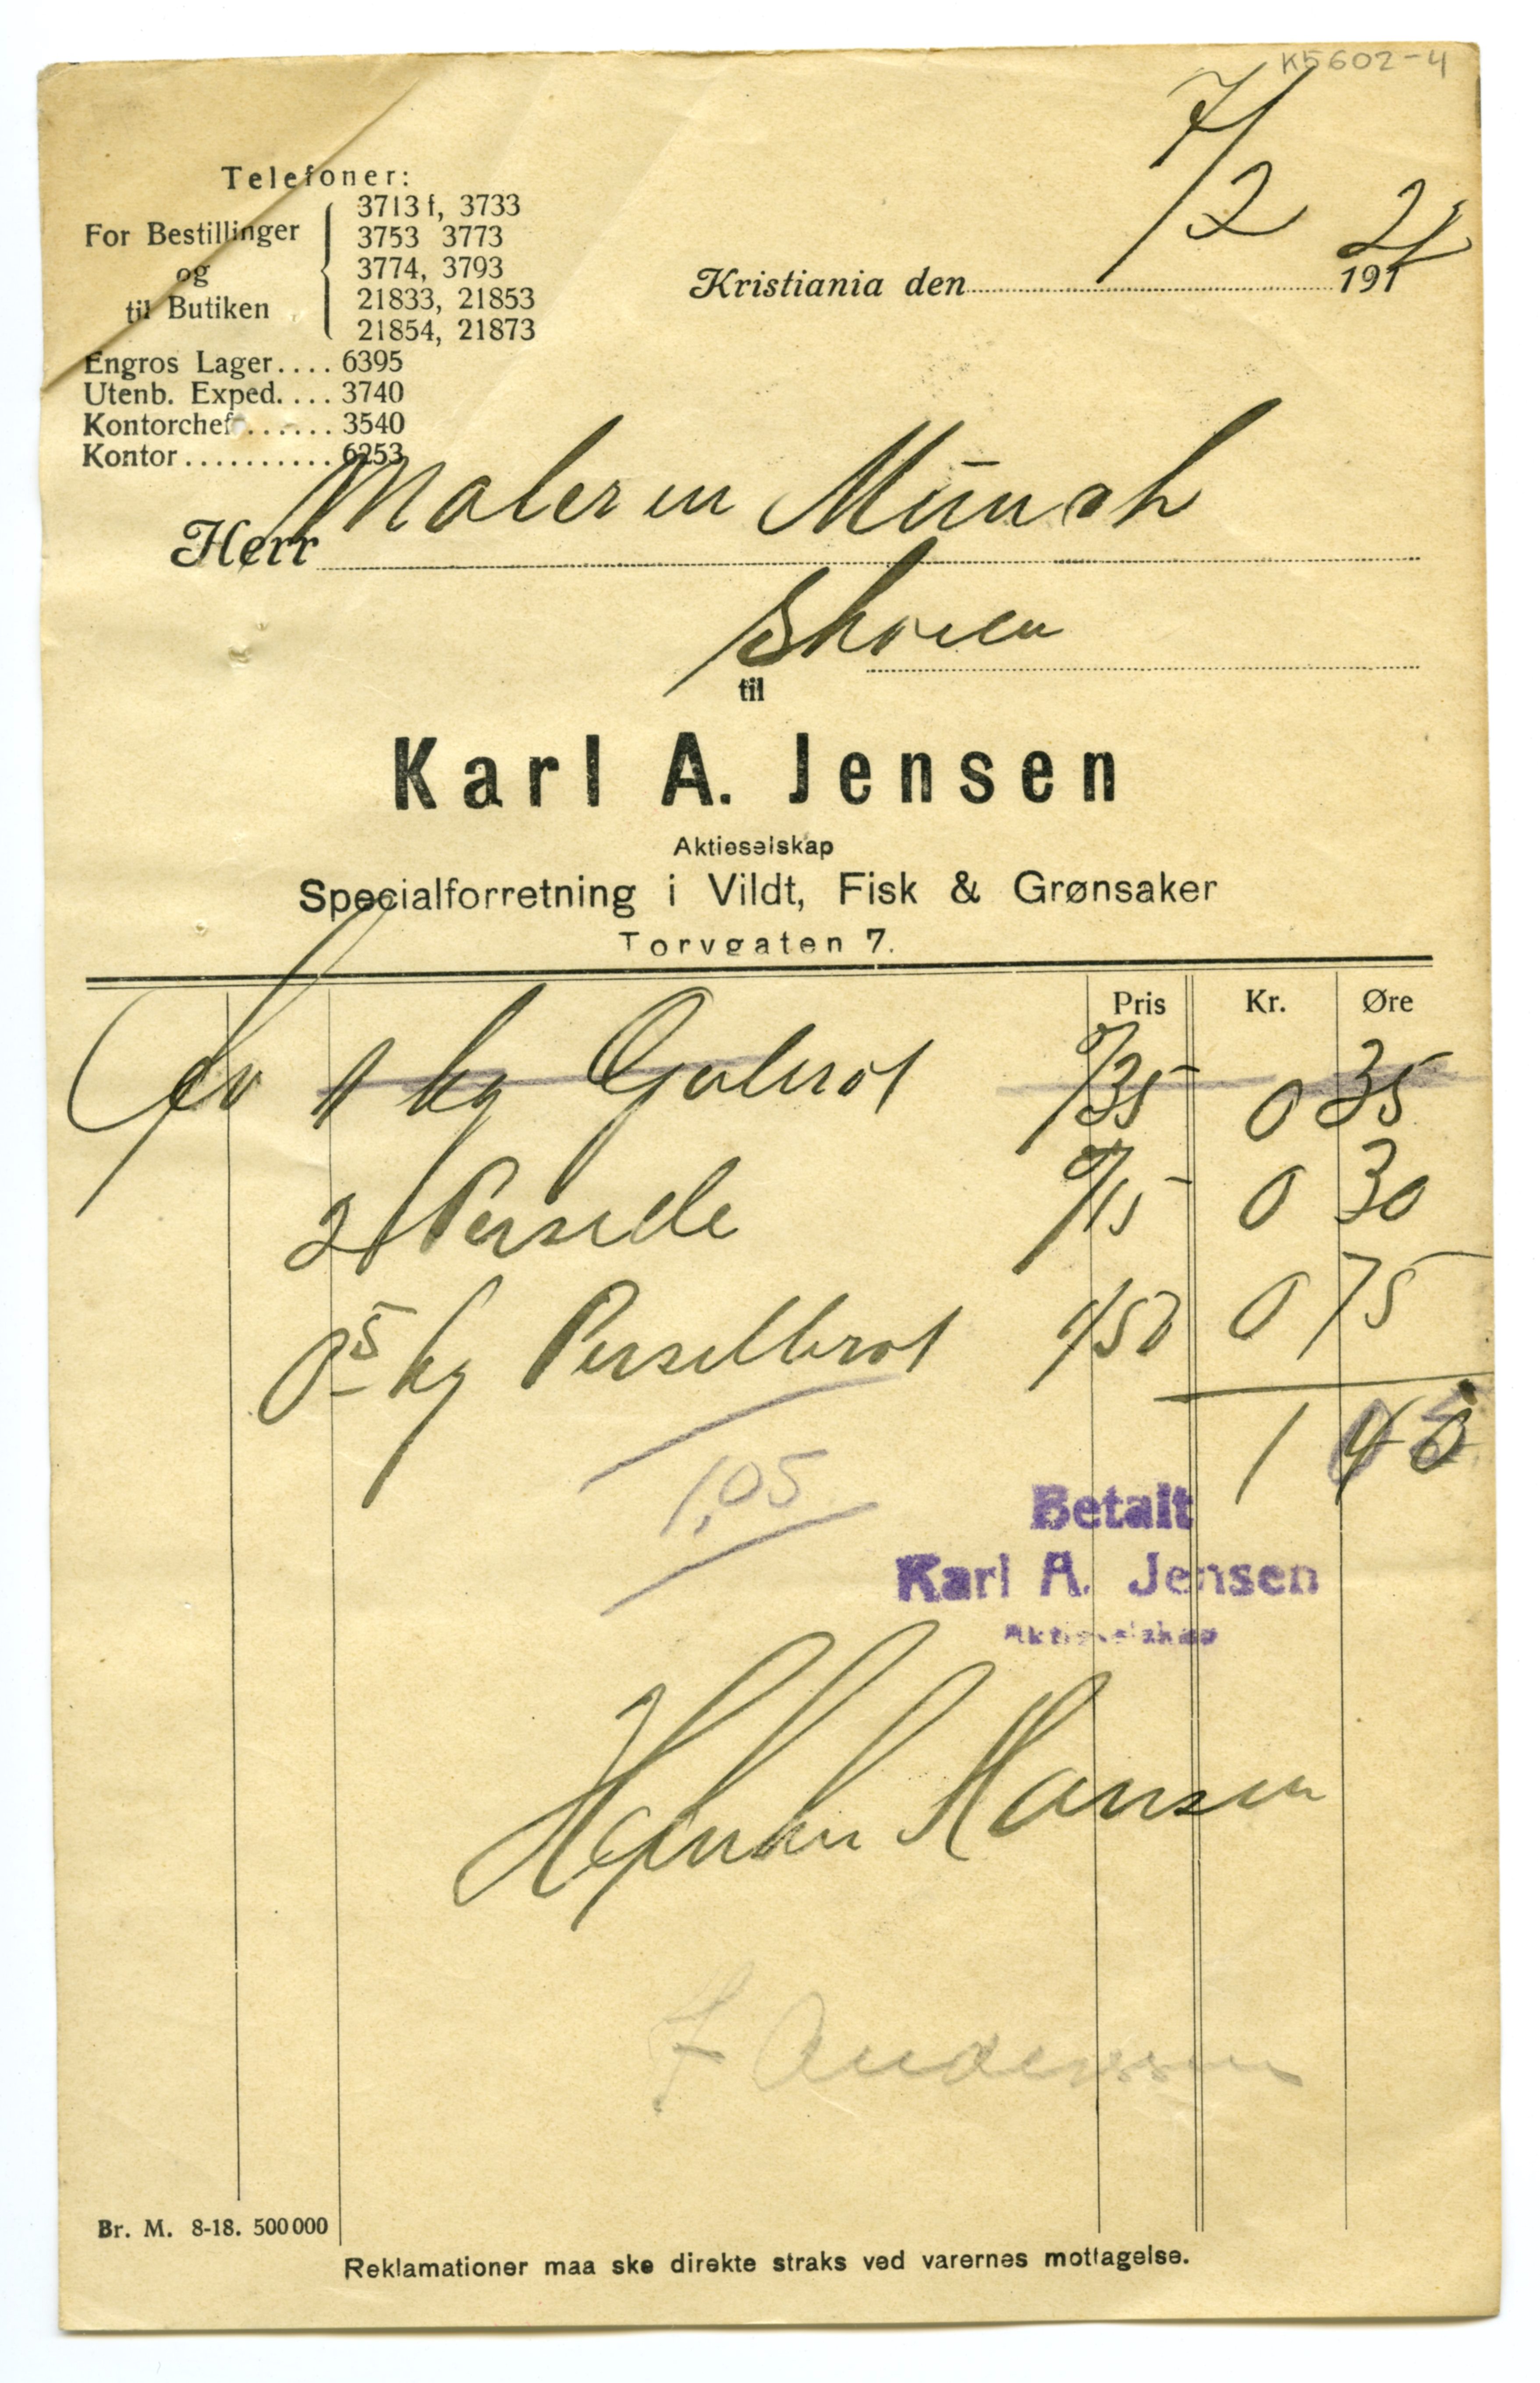 K5602-4
7/2 21
Telefoner:
For Bestillinger og til Butiken
3713 f, 3733
3753 3773
3774, 3793
21833, 21853
21854, 21873
Engros Lager.... 6395
Utenb. Exped. ... 3740
Kontorchef ...... 3540
Kontor .......... 6253
Kristiania den 191
Herr Maleren Munch
Skøien
til
Karl A. Jensen
Aktieselskap
Specialforretning i Vildt, Fisk & Grønsaker
Torvgaten 7.
Pris Kr. Øre
1 kg Gulerøt /35 0 35
2 Persille /15 0 30
0 5 kg Persillerot 1/50 0 75
1 40
1,05
Betalt
Karl A. Jensen
Aktieselskap
Hansen
Anderssen
Br. M. 8-18. 500 000
Reklamationer maa ske direkte straks ved varernes mottagelse.